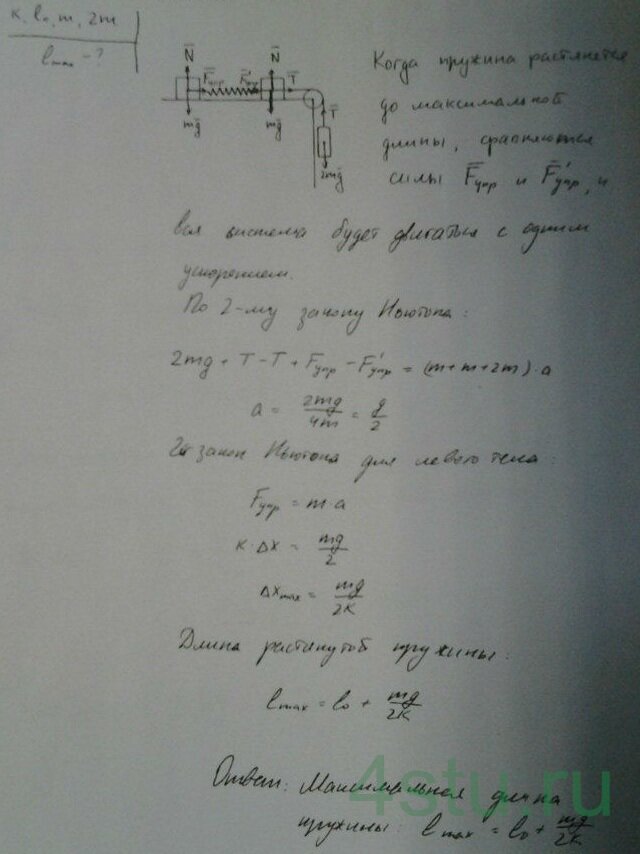 k, l₀, m, 2m
l_max - ?
N̄ N̄
F̄упр F̄'упр T̄
T̄
mḡ mḡ
2mḡ
Когда пружина растянется
до максимальной
длины, сравняются
силы F̄упр и F̄'упр, и
вся система будет двигаться с одним
ускорением.
По 2-му закону Ньютона:
2mg + T - T + Fупр - F'упр = (m+m+2m)·a
a = 2mg/4m = g/2
2й закон Ньютона для левого тела:
Fупр = m·a
k·Δx = mg/2
Δx_max = mg/2k
Длина растянутой пружины:
l_max = l₀ + mg/2k
Ответ: Максимальная длина
пружины: l_max = l₀ + mg/2k
4stu.ru